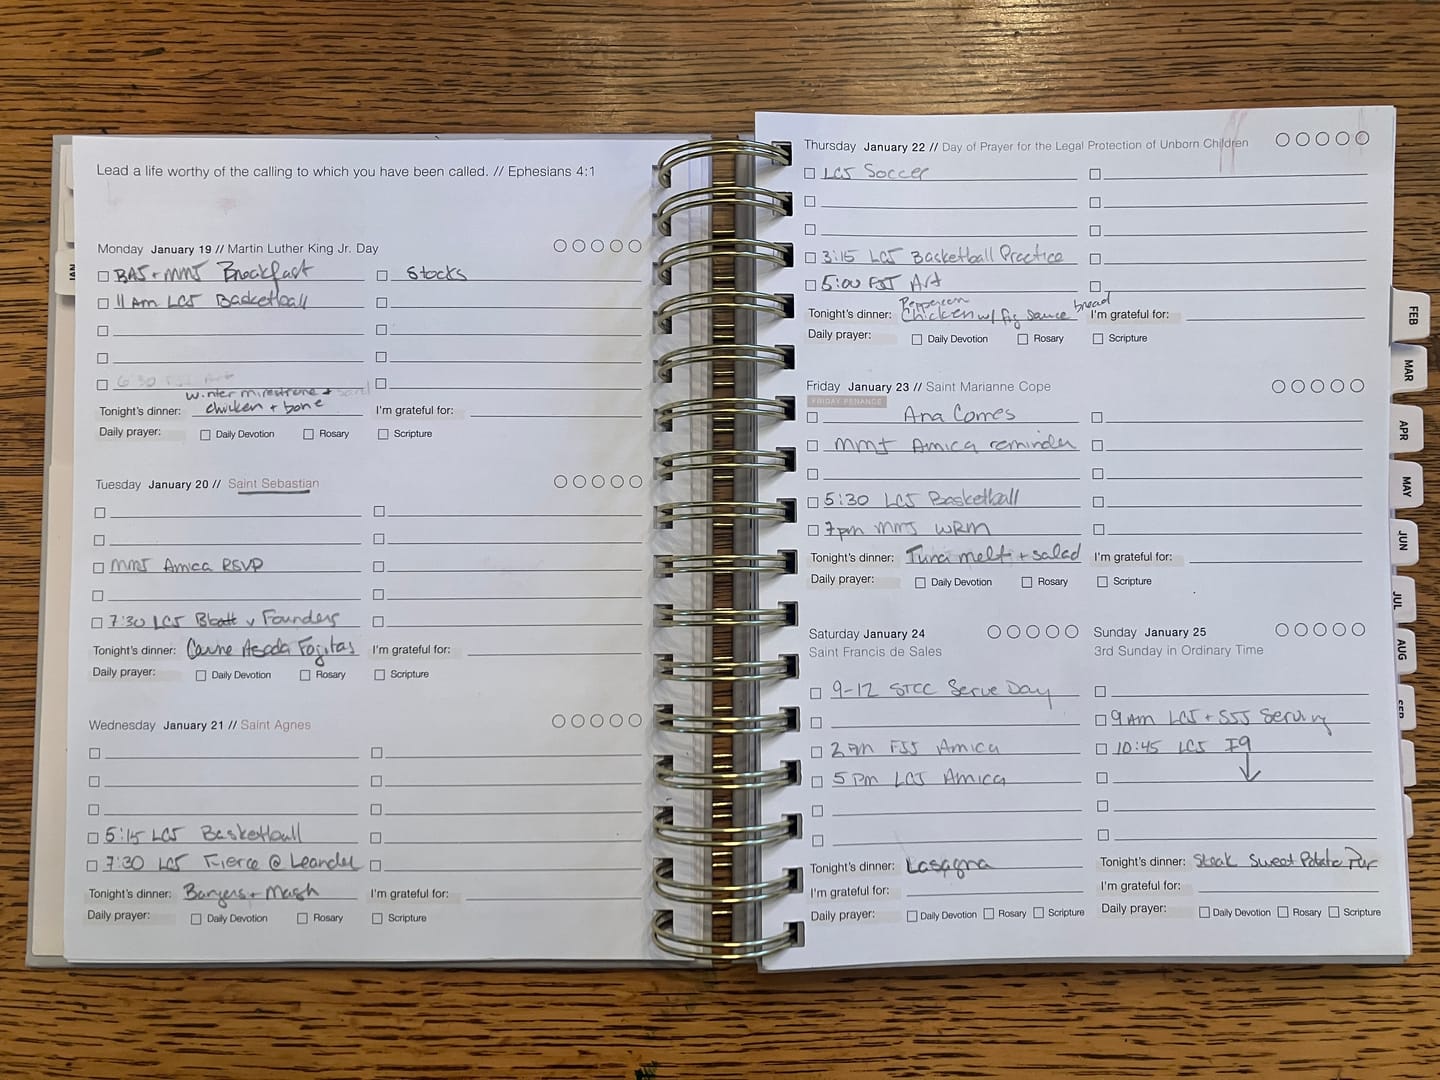 Lead a life worthy of the calling to which you have been called. // Ephesians 4:1
Monday January 19 // Martin Luther King Jr. Day
BAJ + MMJ Breakfast
Stocks
11 Am LCJ Basketball
6:30 FSJ Art
winter minestrone +
Tonight's dinner: chicken + bone
I'm grateful for:
Daily prayer: Daily Devotion Rosary Scripture
Tuesday January 20 // Saint Sebastian
MMJ Amica RSVP
7:30 LCJ v Founders
Tonight's dinner: Carne Asada Fajitas
I'm grateful for:
Daily prayer: Daily Devotion Rosary Scripture
Wednesday January 21 // Saint Agnes
5:15 LCJ Basketball
7:30 LCJ Fierce @ Leander
Tonight's dinner: Bangers + Mash
I'm grateful for:
Daily prayer: Daily Devotion Rosary Scripture
Thursday January 22 // Day of Prayer for the Legal Protection of Unborn Children
LCJ Soccer
3:15 LCJ Basketball Practice
5:00 FSJ Art
Peppercorn
Tonight's dinner: Chicken w/ fig sauce bread
I'm grateful for:
Daily prayer: Daily Devotion Rosary Scripture
Friday January 23 // Saint Marianne Cope
FRIDAY PENANCE
Ana Comes
MMJ Amica reminder
5:30 LCJ Basketball
7pm MMJ WRM
Tonight's dinner: Tuna melt + salad
I'm grateful for:
Daily prayer: Daily Devotion Rosary Scripture
Saturday January 24
Saint Francis de Sales
9-12 STCC Serve Day
2pm FSJ Amica
5pm LCJ Amica
Tonight's dinner: Lasagna
I'm grateful for:
Daily prayer: Daily Devotion Rosary Scripture
Sunday January 25
3rd Sunday in Ordinary Time
9am LCJ + SSJ Serving
10:45 LCJ I9
Tonight's dinner: Steak Sweet Potato Pur
I'm grateful for:
Daily prayer: Daily Devotion Rosary Scripture
FEB
MAR
APR
MAY
JUN
JUL
AUG
SEP